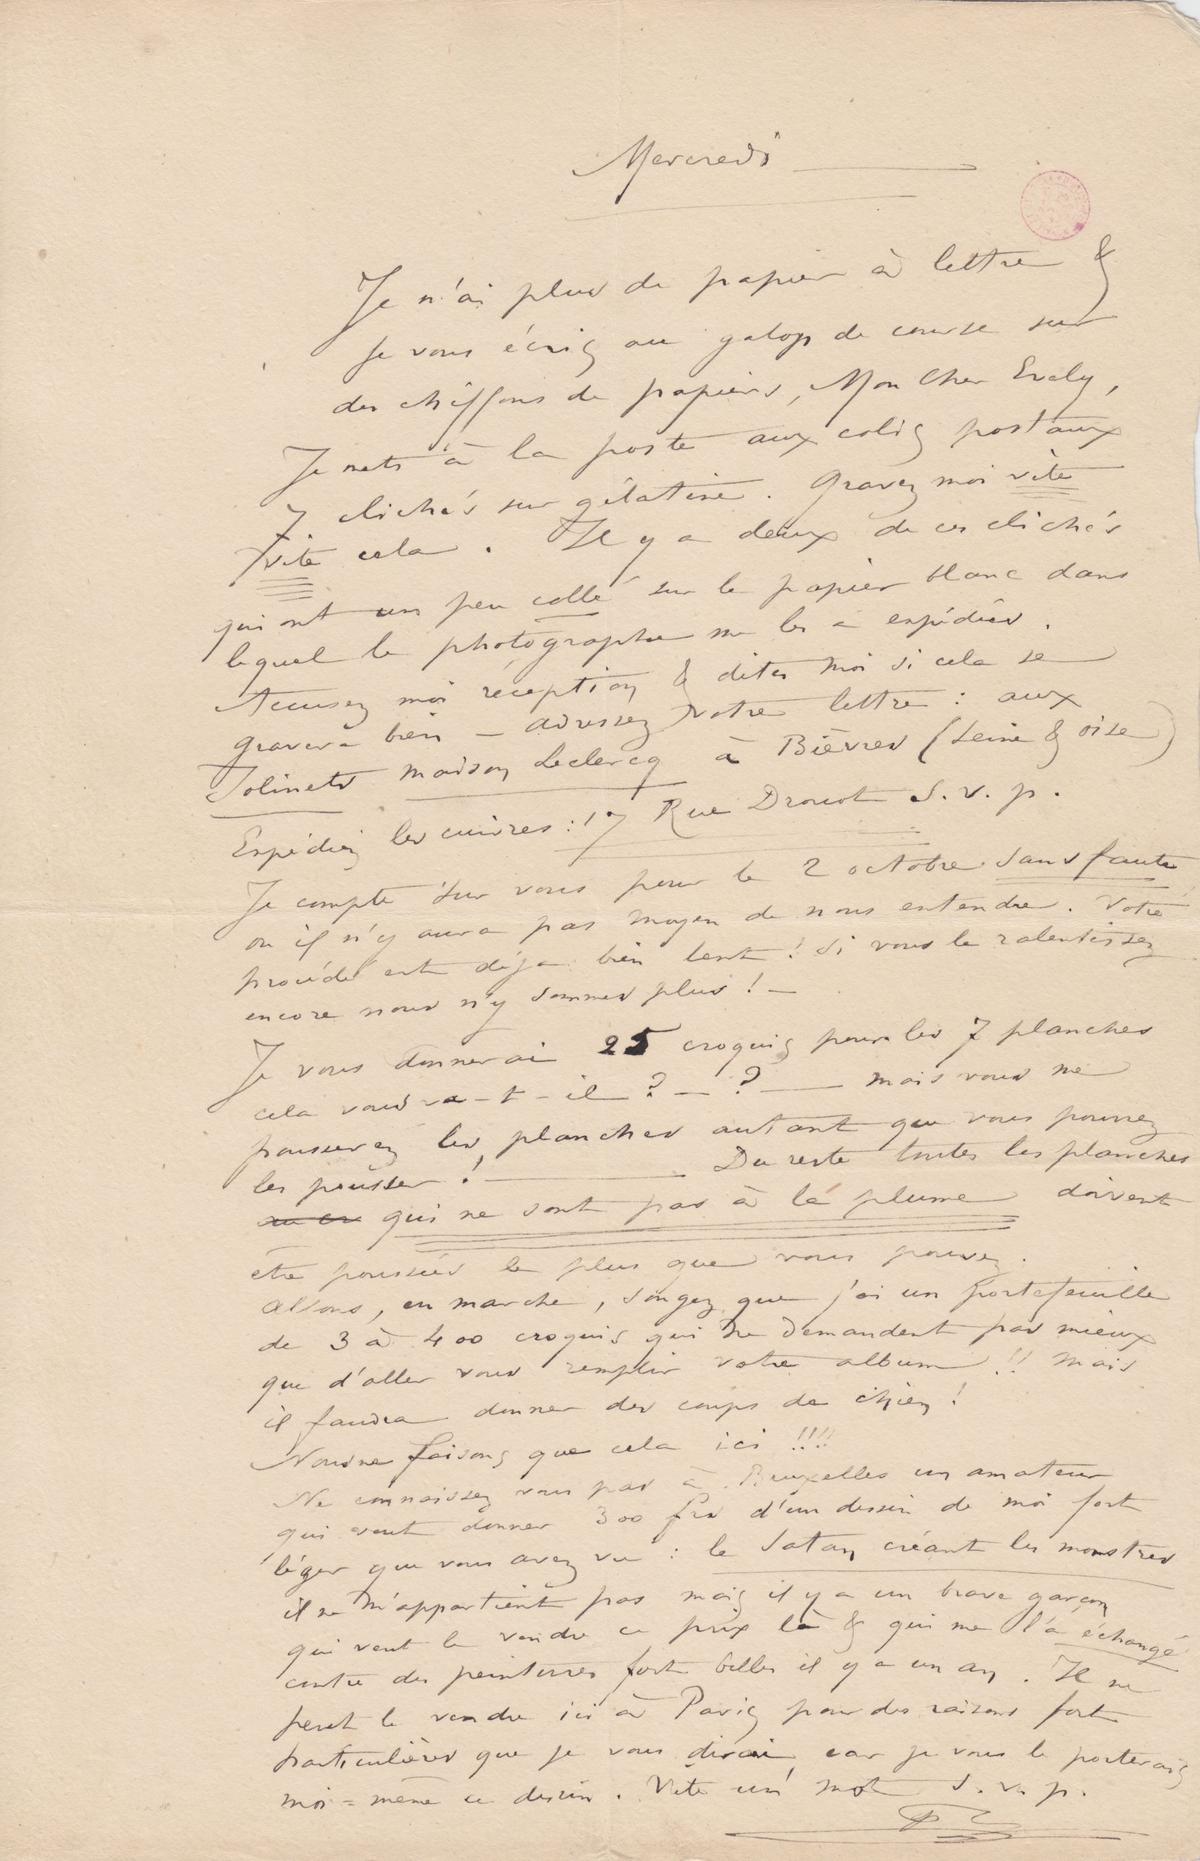 Mercredi
Je n'ai plus de papier à lettre &
je vous écris au galop de course sur
des chiffons de papiers, Mon Cher Evely,
Je mets à la poste aux colis postaux
7 clichés sur gélatine. Gravez moi vite
vite cela. Il y a deux de ces clichés
qui ont un peu collé sur le papier blanc dans
lequel le photographe me les a expédiés.
Accusez moi réception & dites moi si cela se
gravera bien — adressez votre lettre : aux
Jolinets maison Leclercq à Bièvres (Seine & oise)
Expédiez les cuivres : 17 Rue Drouot S. v. p.
Je compte sur vous pour le 2 octobre sans faute
ou il n'y aura pas moyen de nous entendre. Votre
procédé est déjà bien lent ! Si vous le ralentissez
encore nous n'y sommes plus ! —
Je vous donnerai 25 croquis pour les 7 planches
cela vous va-t-il ? — ? — mais vous me
pousserez les planches autant que vous pourrez
les pousser ! — Du reste toutes les planches
qui ne sont pas à la plume doivent
être poussées le plus que vous pouvez.
Allons, en marche, songez que j'ai un portefeuille
de 3 à 400 croquis qui ne demandent pas mieux
que d'aller vous remplir votre album !! Mais
il faudra donner des coups de chien !
Nous ne faisons que cela ici !!!!
Ne connaissez vous pas à Bruxelles un amateur
qui veut donner 300 frs d'un dessin de moi fort
léger que vous avez vu : le Satan créant les monstres
il ne m'appartient pas mais il y a un brave garçon
qui veut le vendre ce prix là & qui me l'a échangé
contre des peintures fort belles il y a un an. Il ne
peut le vendre ici à Paris pour des raisons fort
particulières que je vous dirai car je vous le porterais
moi=même ce dessin. Vite un mot S. v. p.